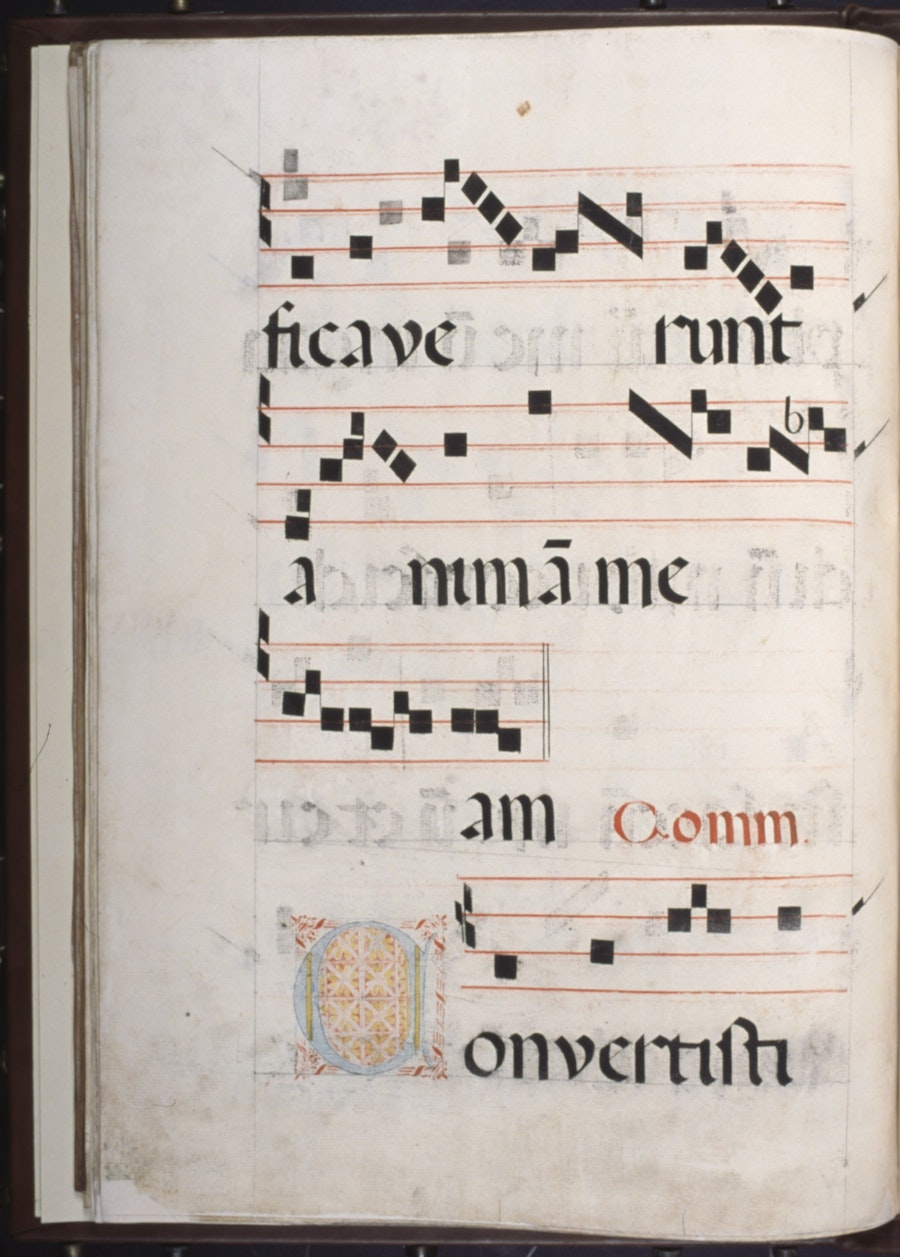 ficave runt
a nimā me
am Comm.
Convertisti